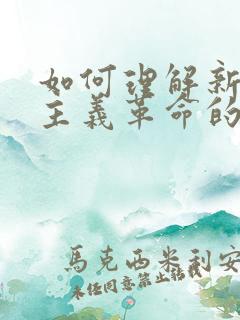 如何理解新
主義革命的
馬克西米利安
未经同意禁止转载